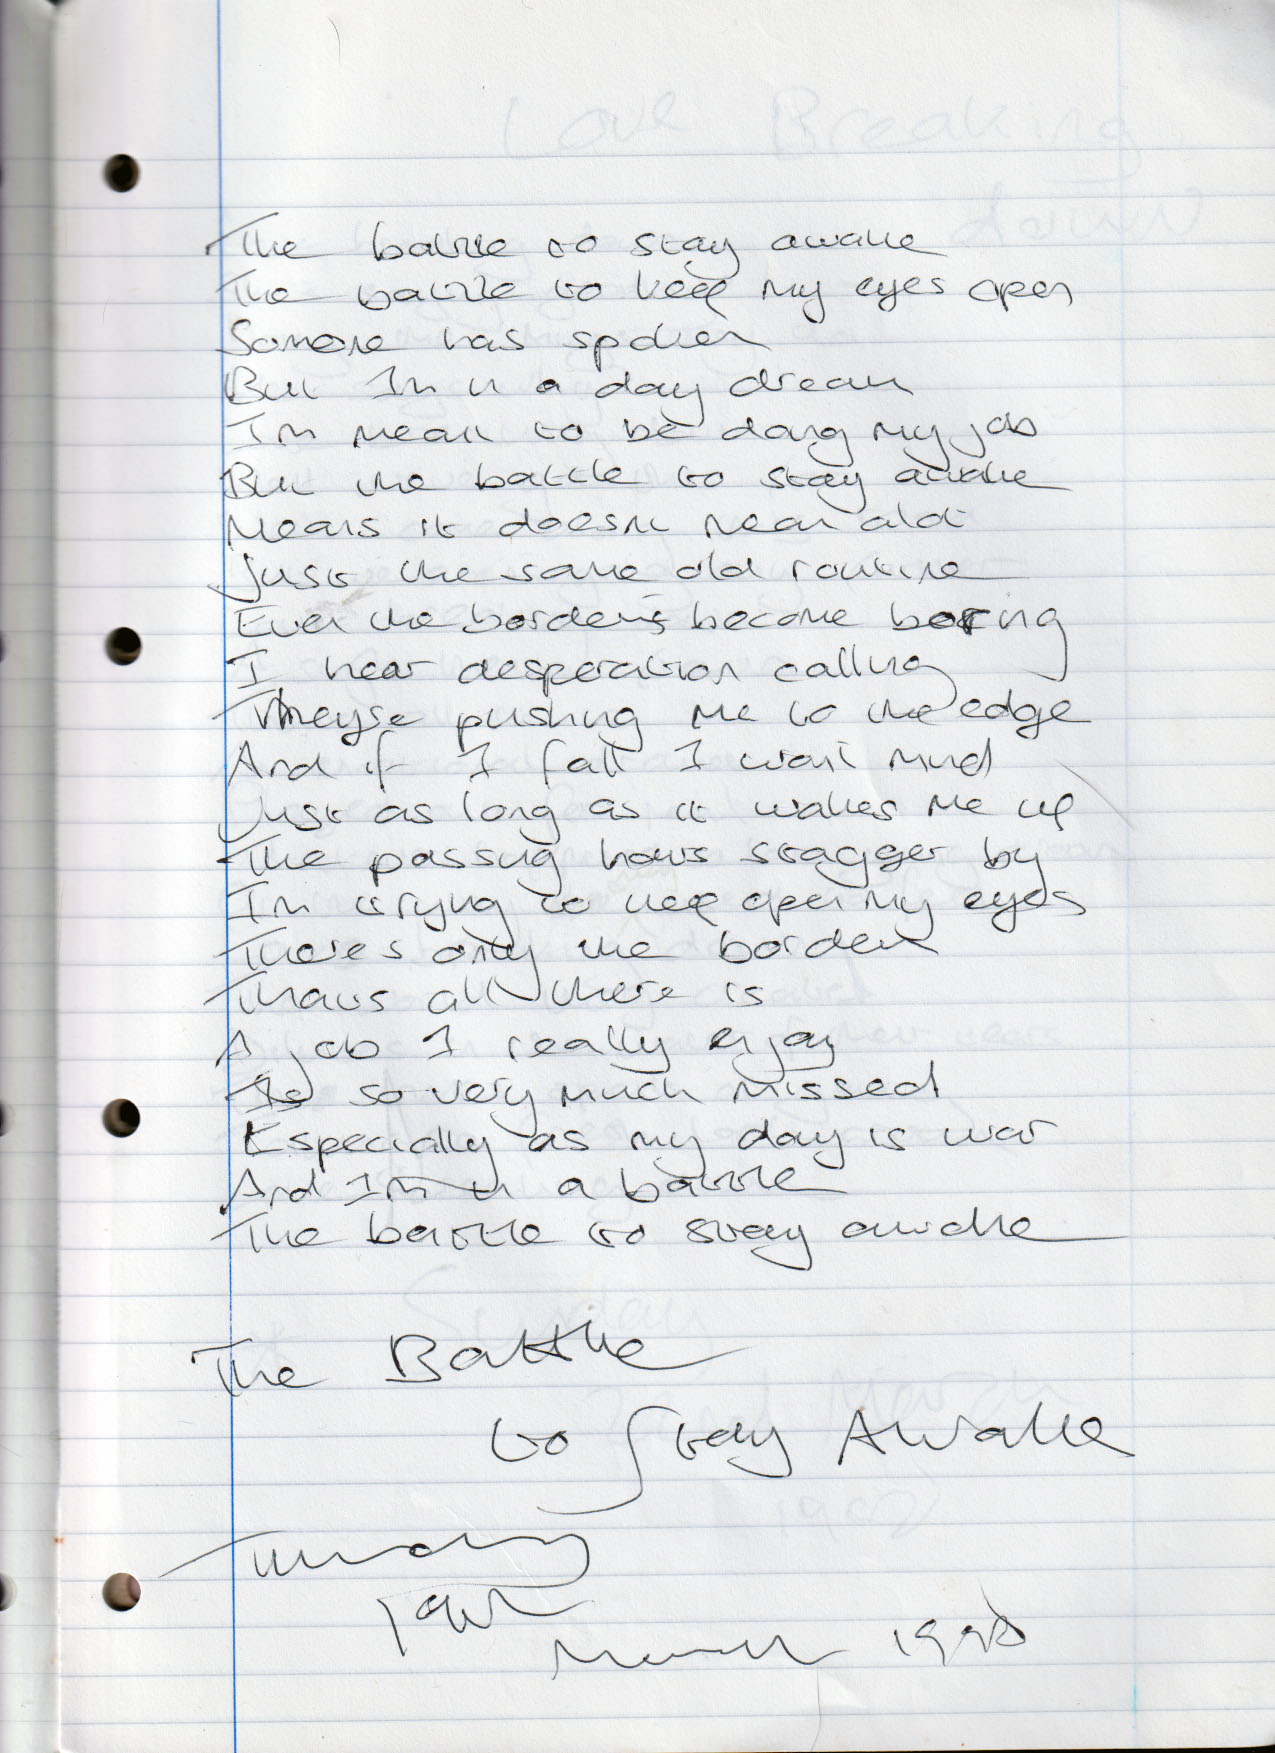 The battle to stay awake
The battle to keep my eyes open
Someone has spoken
But Im in a day dream
Im meant to be doing my job
But the battle to stay awake
Means it doesnt mean alot
Just the same old routine
Even the bordem's become boring
I hear desperation calling
Theyre pushing me to the edge
And if I fall I wont mind
Just as long as it wakes me up
The passing hours stagger by
Im trying to keep open my eyes
Theres only the bordem
Thats all there is
A job I really enjoy
Is so very much missed
Especially as my day is war
And Im in a battle
The battle to stay awake
The Battle
to Stay Awake
Thursday
19th
March 1998